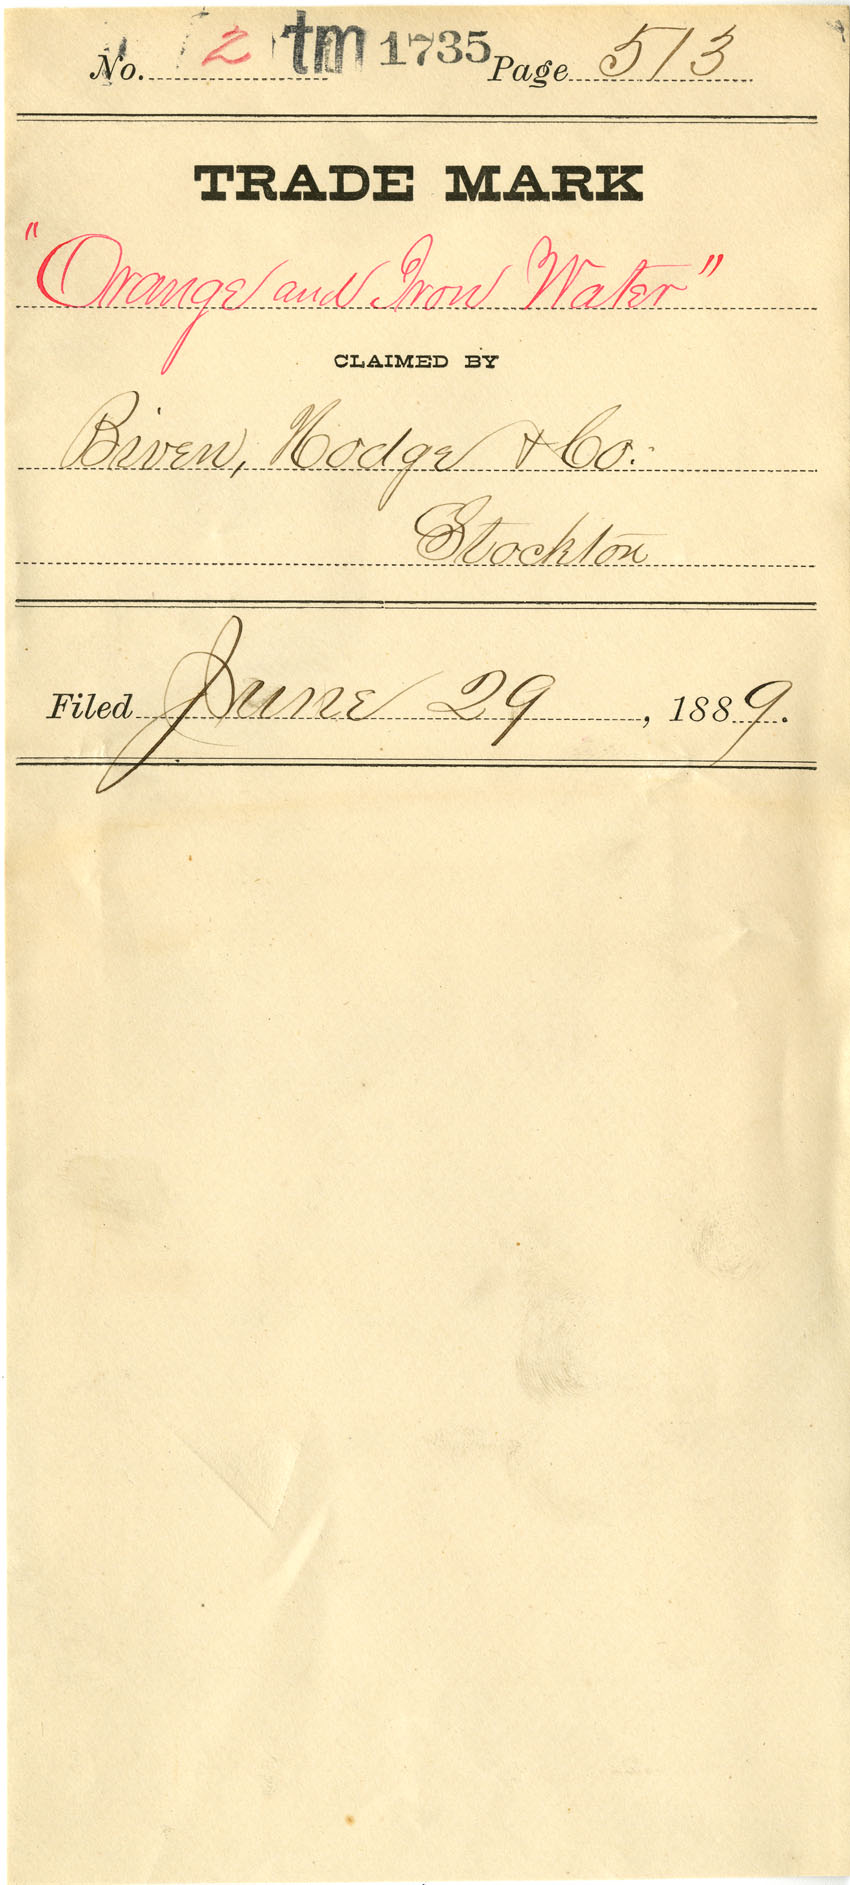 No. 2 tm 1735 Page 513
TRADE MARK
"Orange and Iron Water"
CLAIMED BY
Biven, Hodge & Co.
Stockton
Filed June 29, 1889.